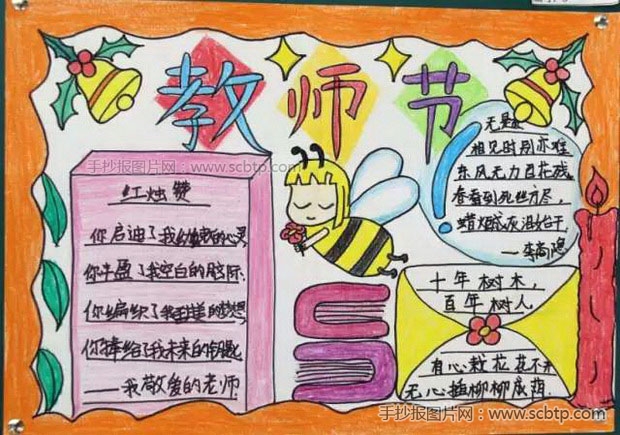 教师节
手抄报图片网：www.scbtp.com
红烛赞
你启迪了我的心灵
你丰盈了我空白的脑际
你编织了我甜美的梦想
你捧给了我未来的钥匙
——我敬爱的老师
无题
相见时别亦难
东风无力百花残
春蚕到死丝方尽，
蜡成灰泪始干
—李商隐
十年树木，
百年树人
有心栽花花不开
无心插柳柳成荫
手抄报图片网：www.scbtp.com